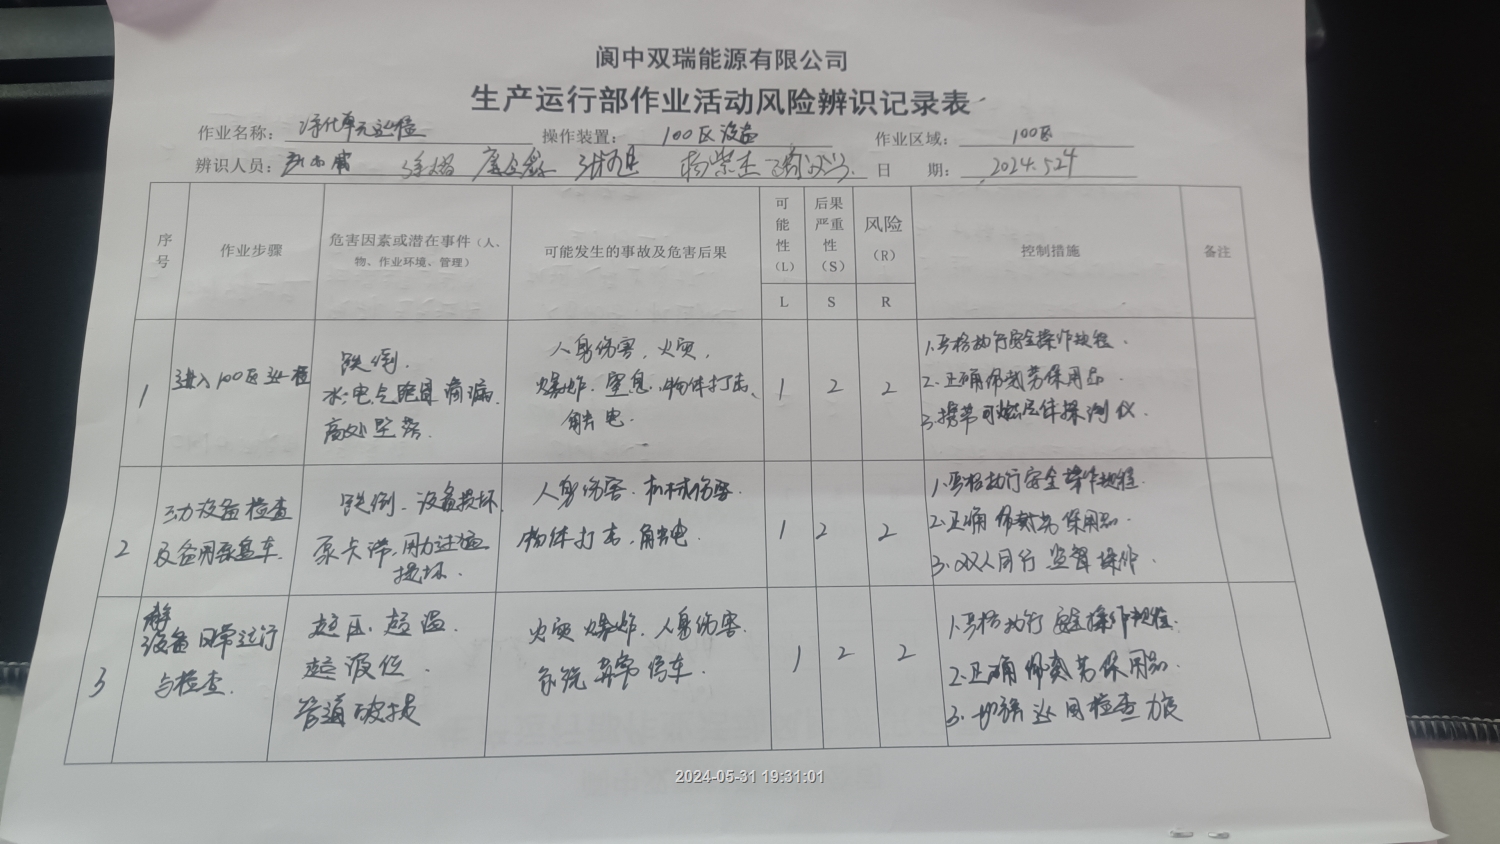 阆中双瑞能源有限公司
生产运行部作业活动风险辨识记录表
作业名称： 净化单元巡检 操作装置： 100区设备 作业区域： 100区
辨识人员： 日 期： 2024.5.24
序号 作业步骤 危害因素或潜在事件（人、物、作业环境、管理） 可能发生的事故及危害后果 可能性（L） 后果严重性（S） 风险（R） 控制措施 备注
L S R
1 进入100区巡检 跌倒. 水.电气跑冒滴漏. 高处坠落. 人身伤害，火灾，爆炸．窒息．物体打击、触电. 1 2 2 1.严格执行安全操作规程. 2.正确佩戴劳保用品. 3.携带可燃气体探测仪.
2 动设备检查及备用泵盘车. 跌倒．设备损坏 泵卡滞，用力过猛损坏. 人身伤害．机械伤害. 物体打击，触电. 1 2 2 1.严格执行安全操作规程. 2.正确佩戴劳保用品. 3.双人同行 监督操作.
3 静设备日常运行与检查. 超压．超温. 超液位. 管道破损 火灾 爆炸．人身伤害. 系统异常停车. 1 2 2 1.严格执行安全操作规程. 2.正确佩戴劳保用品. 3.加强巡回检查力度
2024-05-31 19:31:01